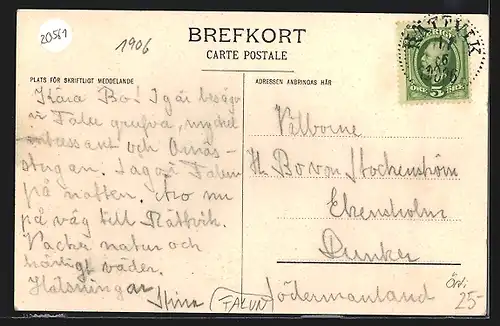 20561
1906
BREFKORT
CARTE POSTALE
RÄTTVIK
SVERIGE
ÖRE 5 ÖRE
PLATS FÖR SKRIFTLIGT MEDDELANDE
ADRESSEN ANBRINGAS HÄR
Kära Bo! I går besågo
vi Falu grufva, mycket
intressant och Ornäs-
stugan. Lago i Falun
på natten. Äro nu
på väg till Rättvik.
Vacker natur och
härligt väder.
Hälsningar
Välborne
H. Bo von Stockenström
Ekensholm
Dunker
Södermanland
FALUN
25-